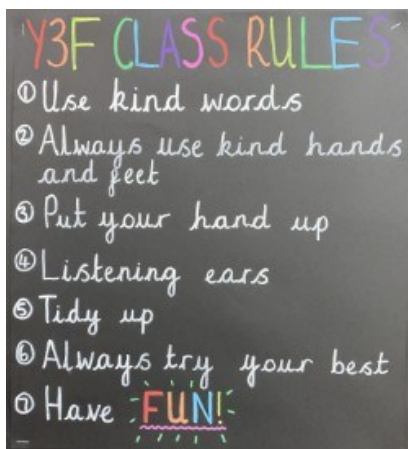 Y3F CLASS RULES
① Use kind words
② Always use kind hands
and feet
③ Put your hand up
④ Listening ears
⑤ Tidy up
⑥ Always try your best
⑦ Have FUN!